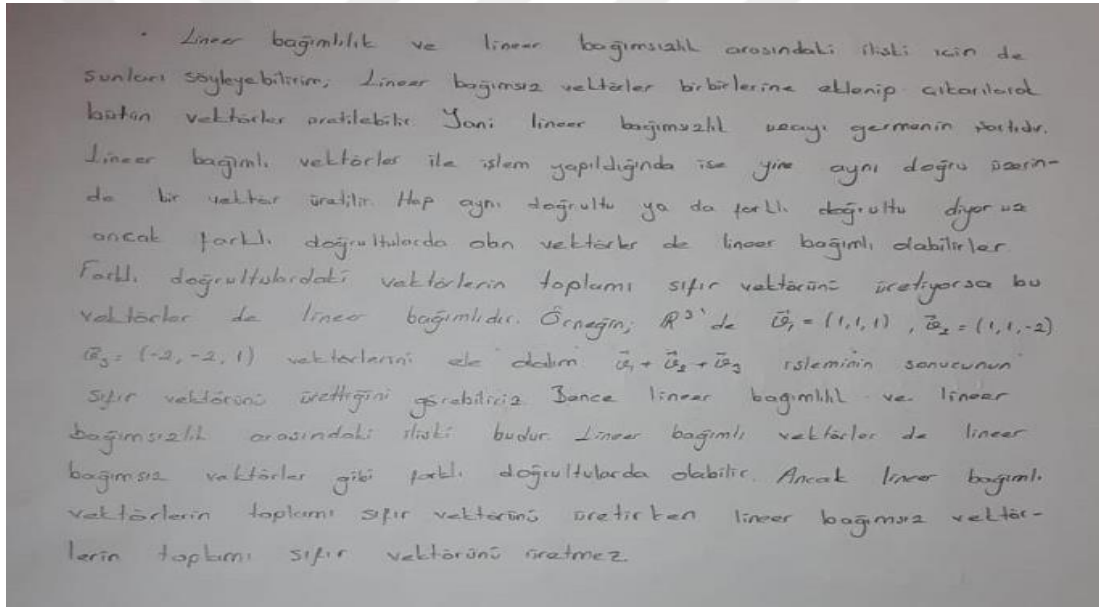 • Lineer bağımlılık ve lineer bağımsızlık arasındaki ilişki için de
şunları söyleyebilirim; Lineer bağımsız vektörler birbirlerine eklenip çıkarılarak
bütün vektörler üretilebilir. Yani lineer bağımsızlık uzayı germenin şartıdır.
Lineer bağımlı vektörler ile işlem yapıldığında ise yine aynı doğru üzerin-
de bir vektör üretilir. Hep aynı doğrultu ya da farklı doğrultu diyoruz
ancak farklı doğrultularda olan vektörler de lineer bağımlı olabilirler.
Farklı doğrultulardaki vektörlerin toplamı sıfır vektörünü üretiyorsa bu
vektörler de lineer bağımlıdır. Örneğin; R³'de v⃗₁ = (1,1,1), v⃗₂ = (1,1,-2)
v⃗₃ = (-2,-2,1) vektörlerini ele alalım v⃗₁ + v⃗₂ + v⃗₃ işleminin sonucunun
sıfır vektörünü ürettiğini görebiliriz. Bence lineer bağımlılık ve lineer
bağımsızlık arasındaki ilişki budur. Lineer bağımlı vektörler de lineer
bağımsız vektörler gibi farklı doğrultularda olabilir. Ancak lineer bağımlı
vektörlerin toplamı sıfır vektörünü üretirken lineer bağımsız vektör-
lerin toplamı sıfır vektörünü üretmez.